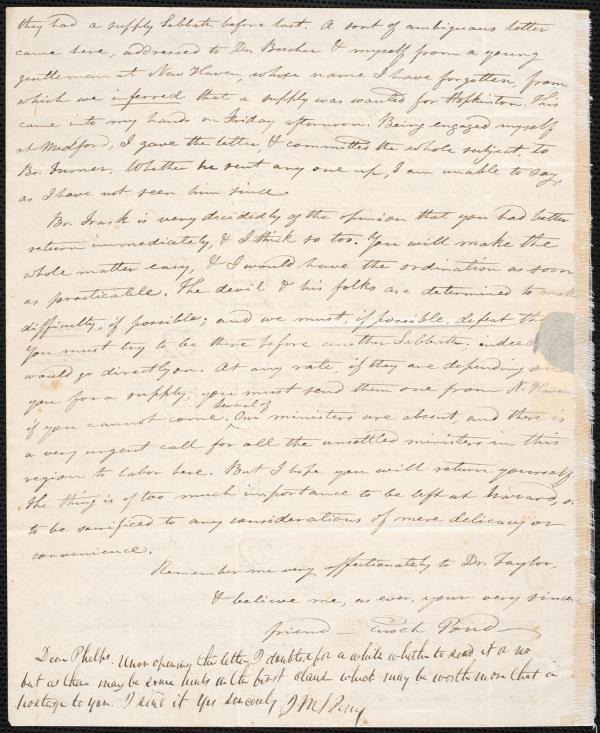 they had a supply Sabbath before last. A sort of ambiguous letter
came here, addressed to Dr. Beecher & myself from a young
gentleman at New Haven, whose name I have forgotten, from
which we inferred that a supply was wanted for Hopkinton. This
came into my hands on Friday afternoon. Being engaged myself
at Medford, I gave the letter, & committed the whole subject, to
Br. Turner. Whether he sent any one up, I am unable to say,
as I have not seen him since.
Br. Trask is very decidedly of the opinion that you had better
return immediately, & I think so too. You will make the
whole matter easy, & I would have the ordination as soon
as practicable. The devil & his folks are determined to make
difficulty, if possible; and we must, if possible, defeat th
You must try to be there before another Sabbath; indeed
would go directly on. At any rate, if they are depending on
you for a supply, you must send them one from N. Haven
if you cannot come. several of Our ministers are absent, and there is
a very urgent call for all the unsettled ministers in this
region to labor here. But I hope you will return yourself.
The thing is of too much importance to be left at hazard, or
to be sacrificed to any considerations of mere delicacy or
convenience.
Remember me very affectionately to Dr. Taylor,
& believe me, as ever, your very since
friend — Enoch Pond
Dear Phelps. Upon opening the letter, I doubted for a while whether to send it or no
but as there may be some hints in the first which may be worth more than a
postage to you. I send it Yrs sincerely